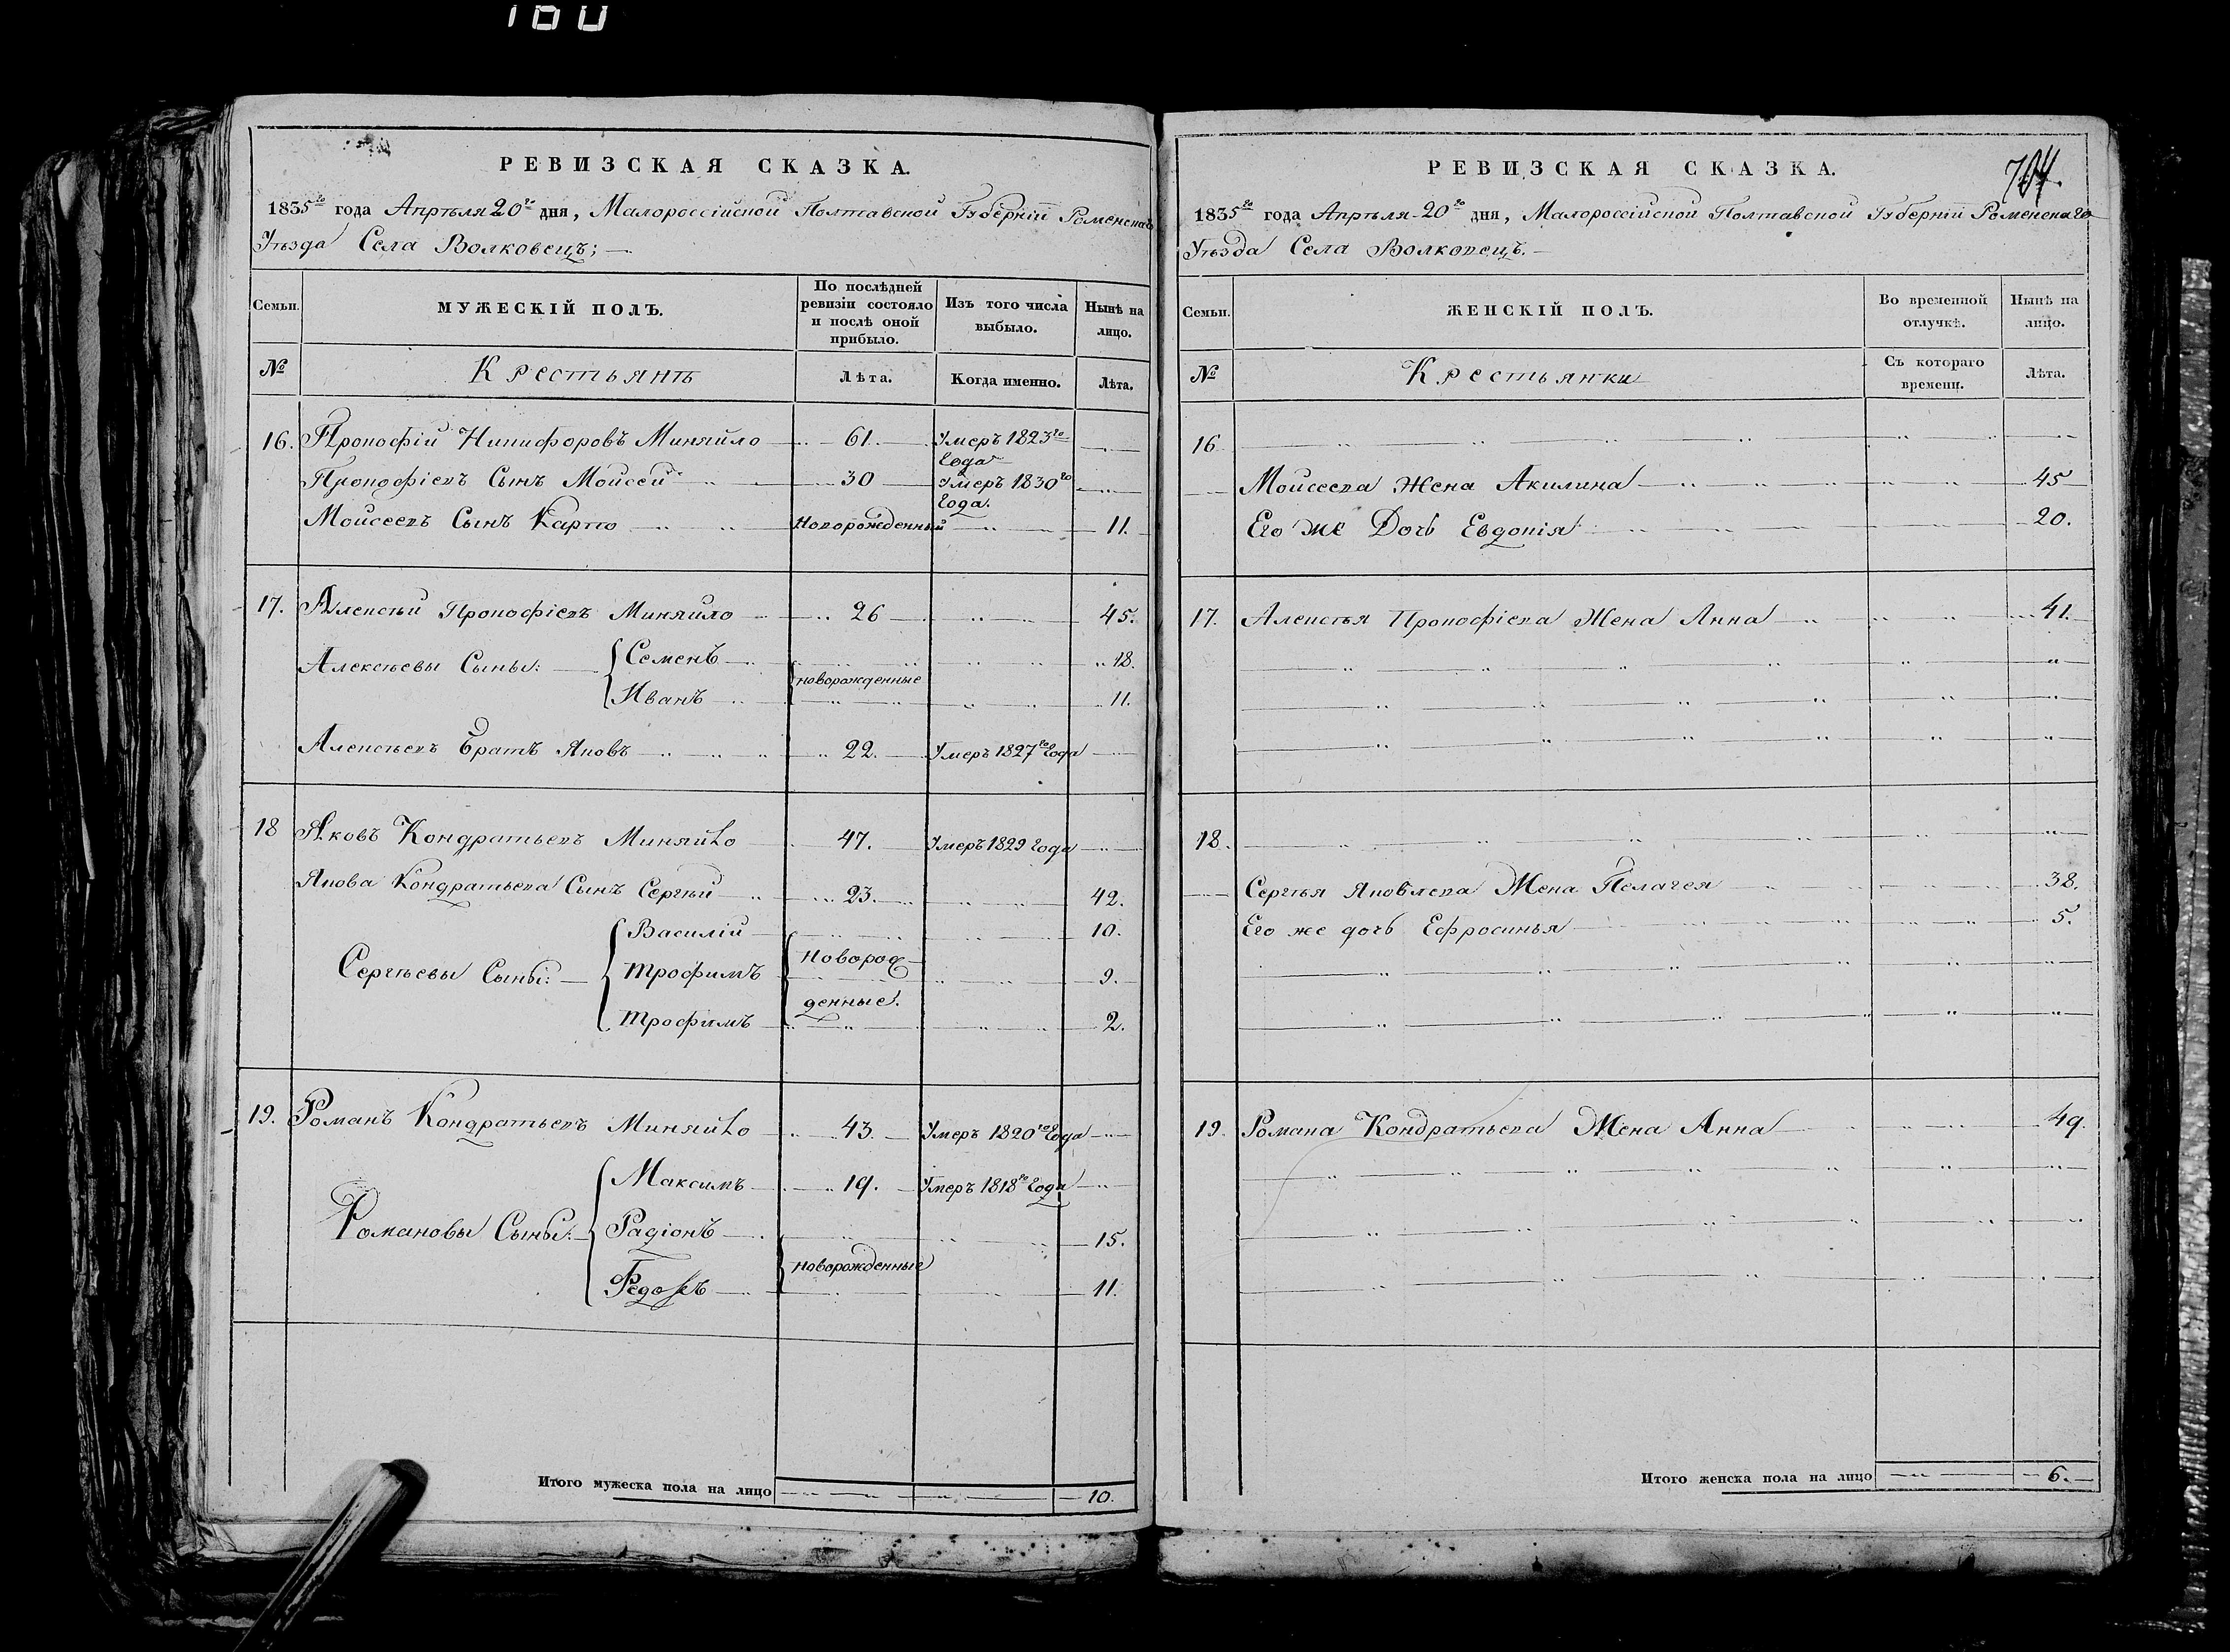 160
РЕВИЗСКАЯ СКАЗКА.
1835го года Апрѣля 20го дня, Малороссійской Полтавской Губерніи Роменскаго
Уѣзда Села Волковецъ;
Семьи.
МУЖЕСКІЙ ПОЛЪ.
По послѣдней ревизіи состояло и послѣ оной прибыло.
Изъ того числа выбыло.
Нынѣ на лицо.
№
Крестьянъ
Лѣта.
Когда именно.
Лѣта.
16. Прокофій Никифоровъ Миняйло 61. Умеръ 1823го года
Прокофіевъ Сынъ Моисей 30 Умеръ 1830го года.
Моисеевъ Сынъ Карпо Новорожденный 11.
17. Алексѣй Прокофіевъ Миняйло 26 45.
Алексѣевы Сыны: Семенъ 18.
новорожденные
Иванъ 11.
Алексѣевъ Братъ Яковъ 22. Умеръ 1827го года
18 Яковъ Кондратьевъ Миняйло 47. Умеръ 1829 года
Якова Кондратьева Сынъ Сергѣй 23. 42.
Василій 10.
Сергѣевы Сыны: Трофимъ Новорожденные. 9.
Трофимъ 2.
19. Романъ Кондратьевъ Миняйло 43. Умеръ 1820го года
Максимъ 19. Умеръ 1818го года
Романовы Сыны: Радіонъ 15.
новорожденные
Федосъ 11.
Итого мужеска пола на лицо 10.
РЕВИЗСКАЯ СКАЗКА.
704.
1835го года Апрѣля 20го дня, Малороссійской Полтавской Губерніи Роменскаго
Уѣзда Села Волковецъ.
Семьи.
ЖЕНСКІЙ ПОЛЪ.
Во временной отлучкѣ.
Нынѣ на лицо.
№
Крестьянки
Съ котораго времени.
Лѣта.
16
Моисеева Жена Акилина 45
Его же Дочь Евдокія 20.
17. Алексѣя Прокофіева Жена Анна 41.
18.
Сергѣя Яковлева Жена Пелагея 38.
Его же дочь Ефросинья 5.
19. Романа Кондратьева Жена Анна 49.
Итого женска пола на лицо 6.